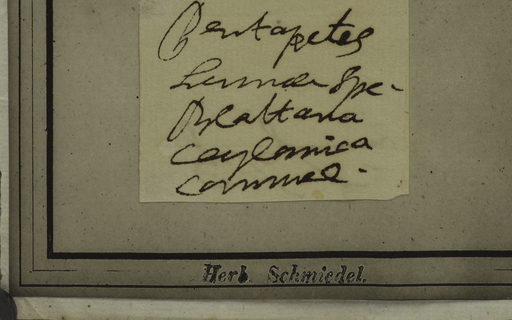 Pentapetes
Linnaei Spe-
Plattana
Ceylonica
Herb. Schmiedel.